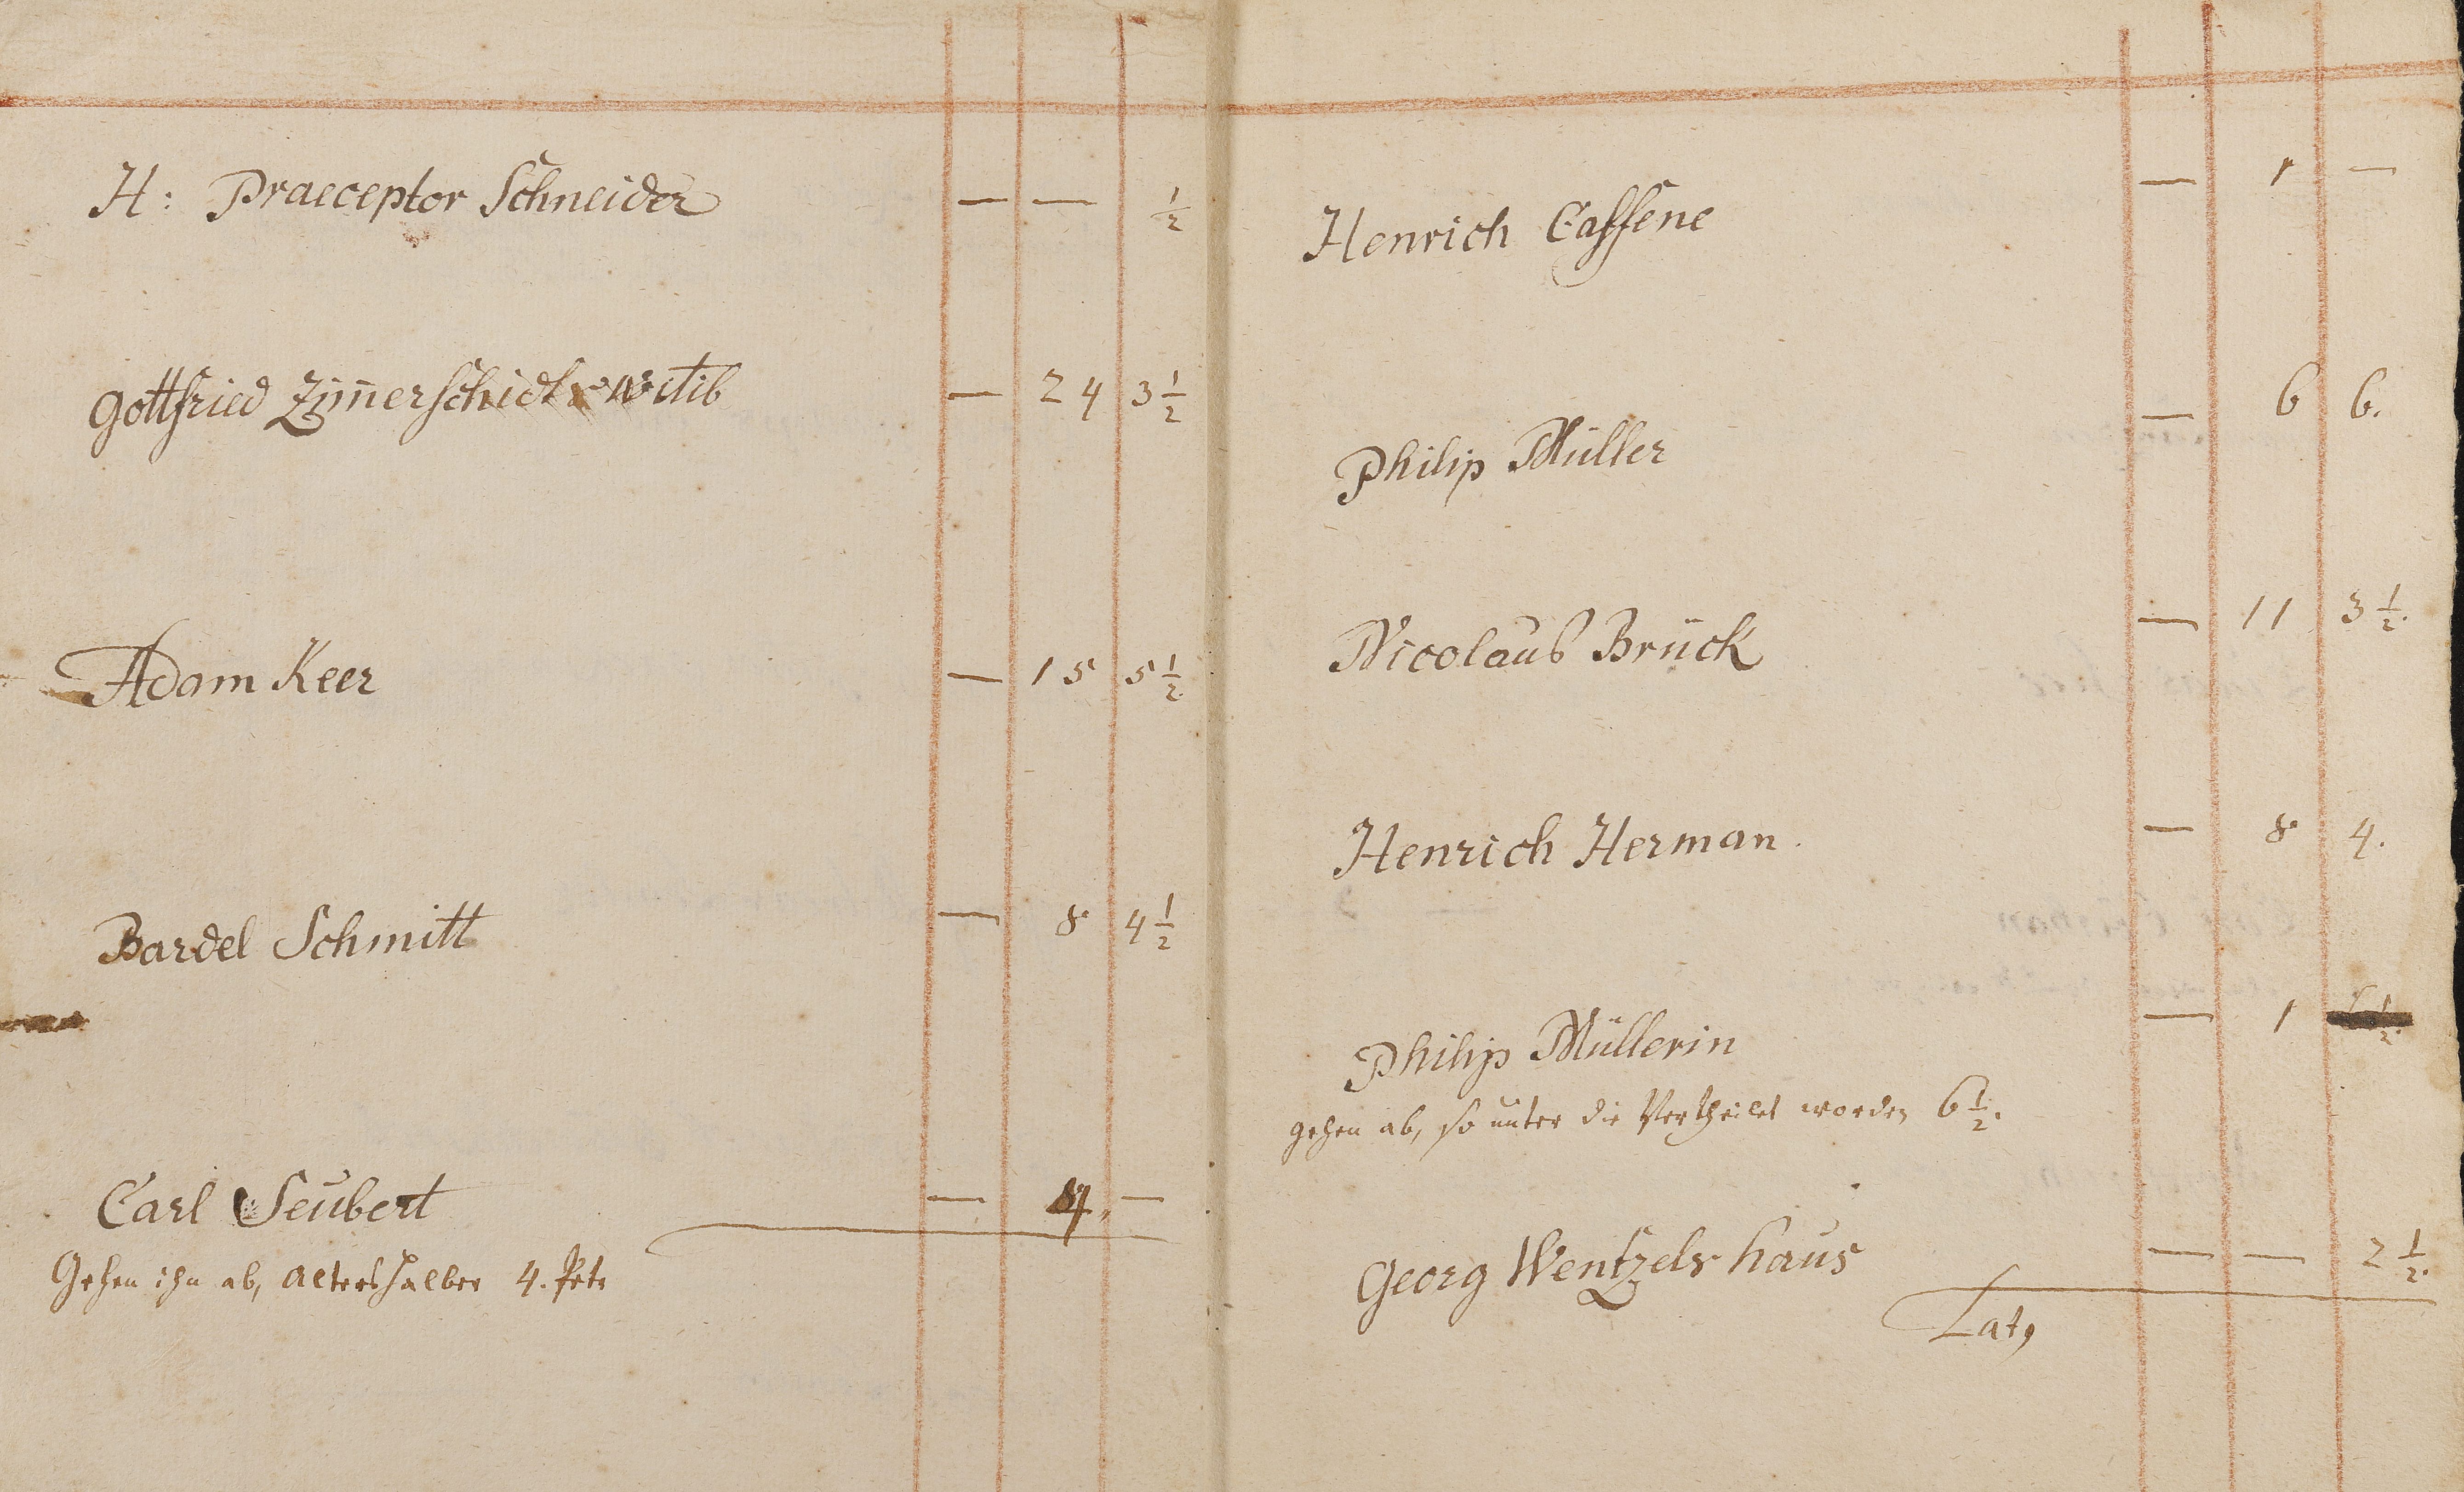 H: Praeceptor Schneider — — ½
Gottfried Zim̄erschidt witib — 24 3½
Adam Keer — 15 5½
Bardel Schmitt — 8 4½
Carl Seübert — 4. —
Gehen ihn ab, altershalber 4.
Henrich Cassene — 1 —
Philip Müller — 6 6.
Nicolaus Brück — 11 3½.
Henrich Herman. — 8 4.
Philip Müllerin — 1
gehen ab, so unter die Vertheilet worden 6½.
Georg Wentzels haus — — 2½.
Lat9